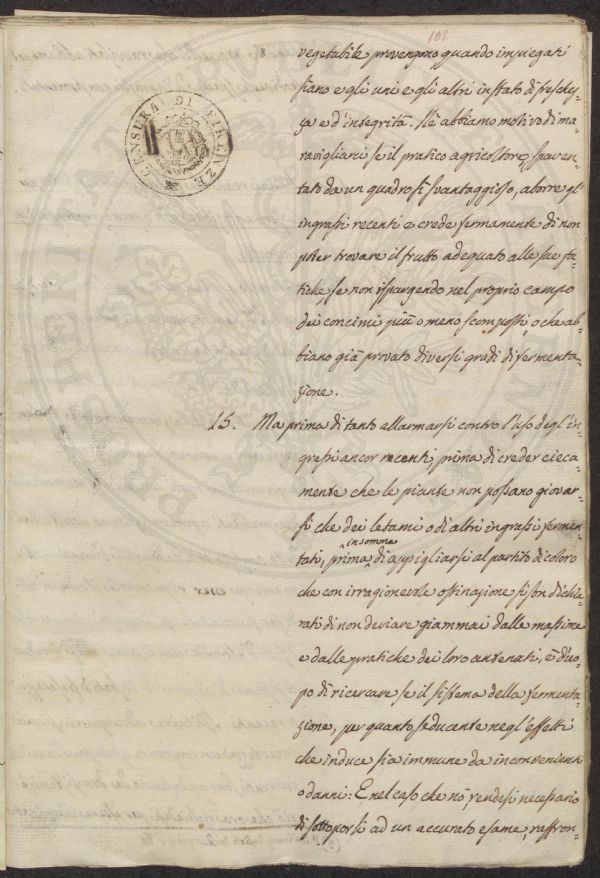 102
8
vegetabile provengono quando impiegati
siano e gli uni e gli altri in stato di freschez-
za e d'integrità. Nè abbiamo motivo di ma-
ravigliarci se il pratico agricoltore, spaven-
tato da un quadro sì svantaggioso, aborre gl'
ingrassi recenti e crede fermamente di non
poter trovare il frutto adequato alle sue fa-
tiche, se non ispargendo nel proprio campo
dei concimi più o meno scomposti, o che ab-
biano già provato diversi gradi di fermenta-
zione.
15. Ma prima di tanto allarmarsi contro l'uso degl'in-
grassi ancor recenti, prima di creder cieca-
mente che le piante non possano giovar-
si che dei letami o di altri ingrassi fermen-
tati, prima insomma di appigliarsi al partito di coloro
che con irragionevole ostinazione si son dichia-
rati di non deviare giammai dalle massime
e dalle pratiche dei loro antenati, è d'uo-
po di ricercare se il sistema della fermenta-
zione, per quanto seducente negl'effetti
che induce sia immune da inconvenienti
o danni: E nel caso che nō rendesi necessario
di sottoporsi ad un accurato esame, raffron-
CENSURA DI FIRENZE